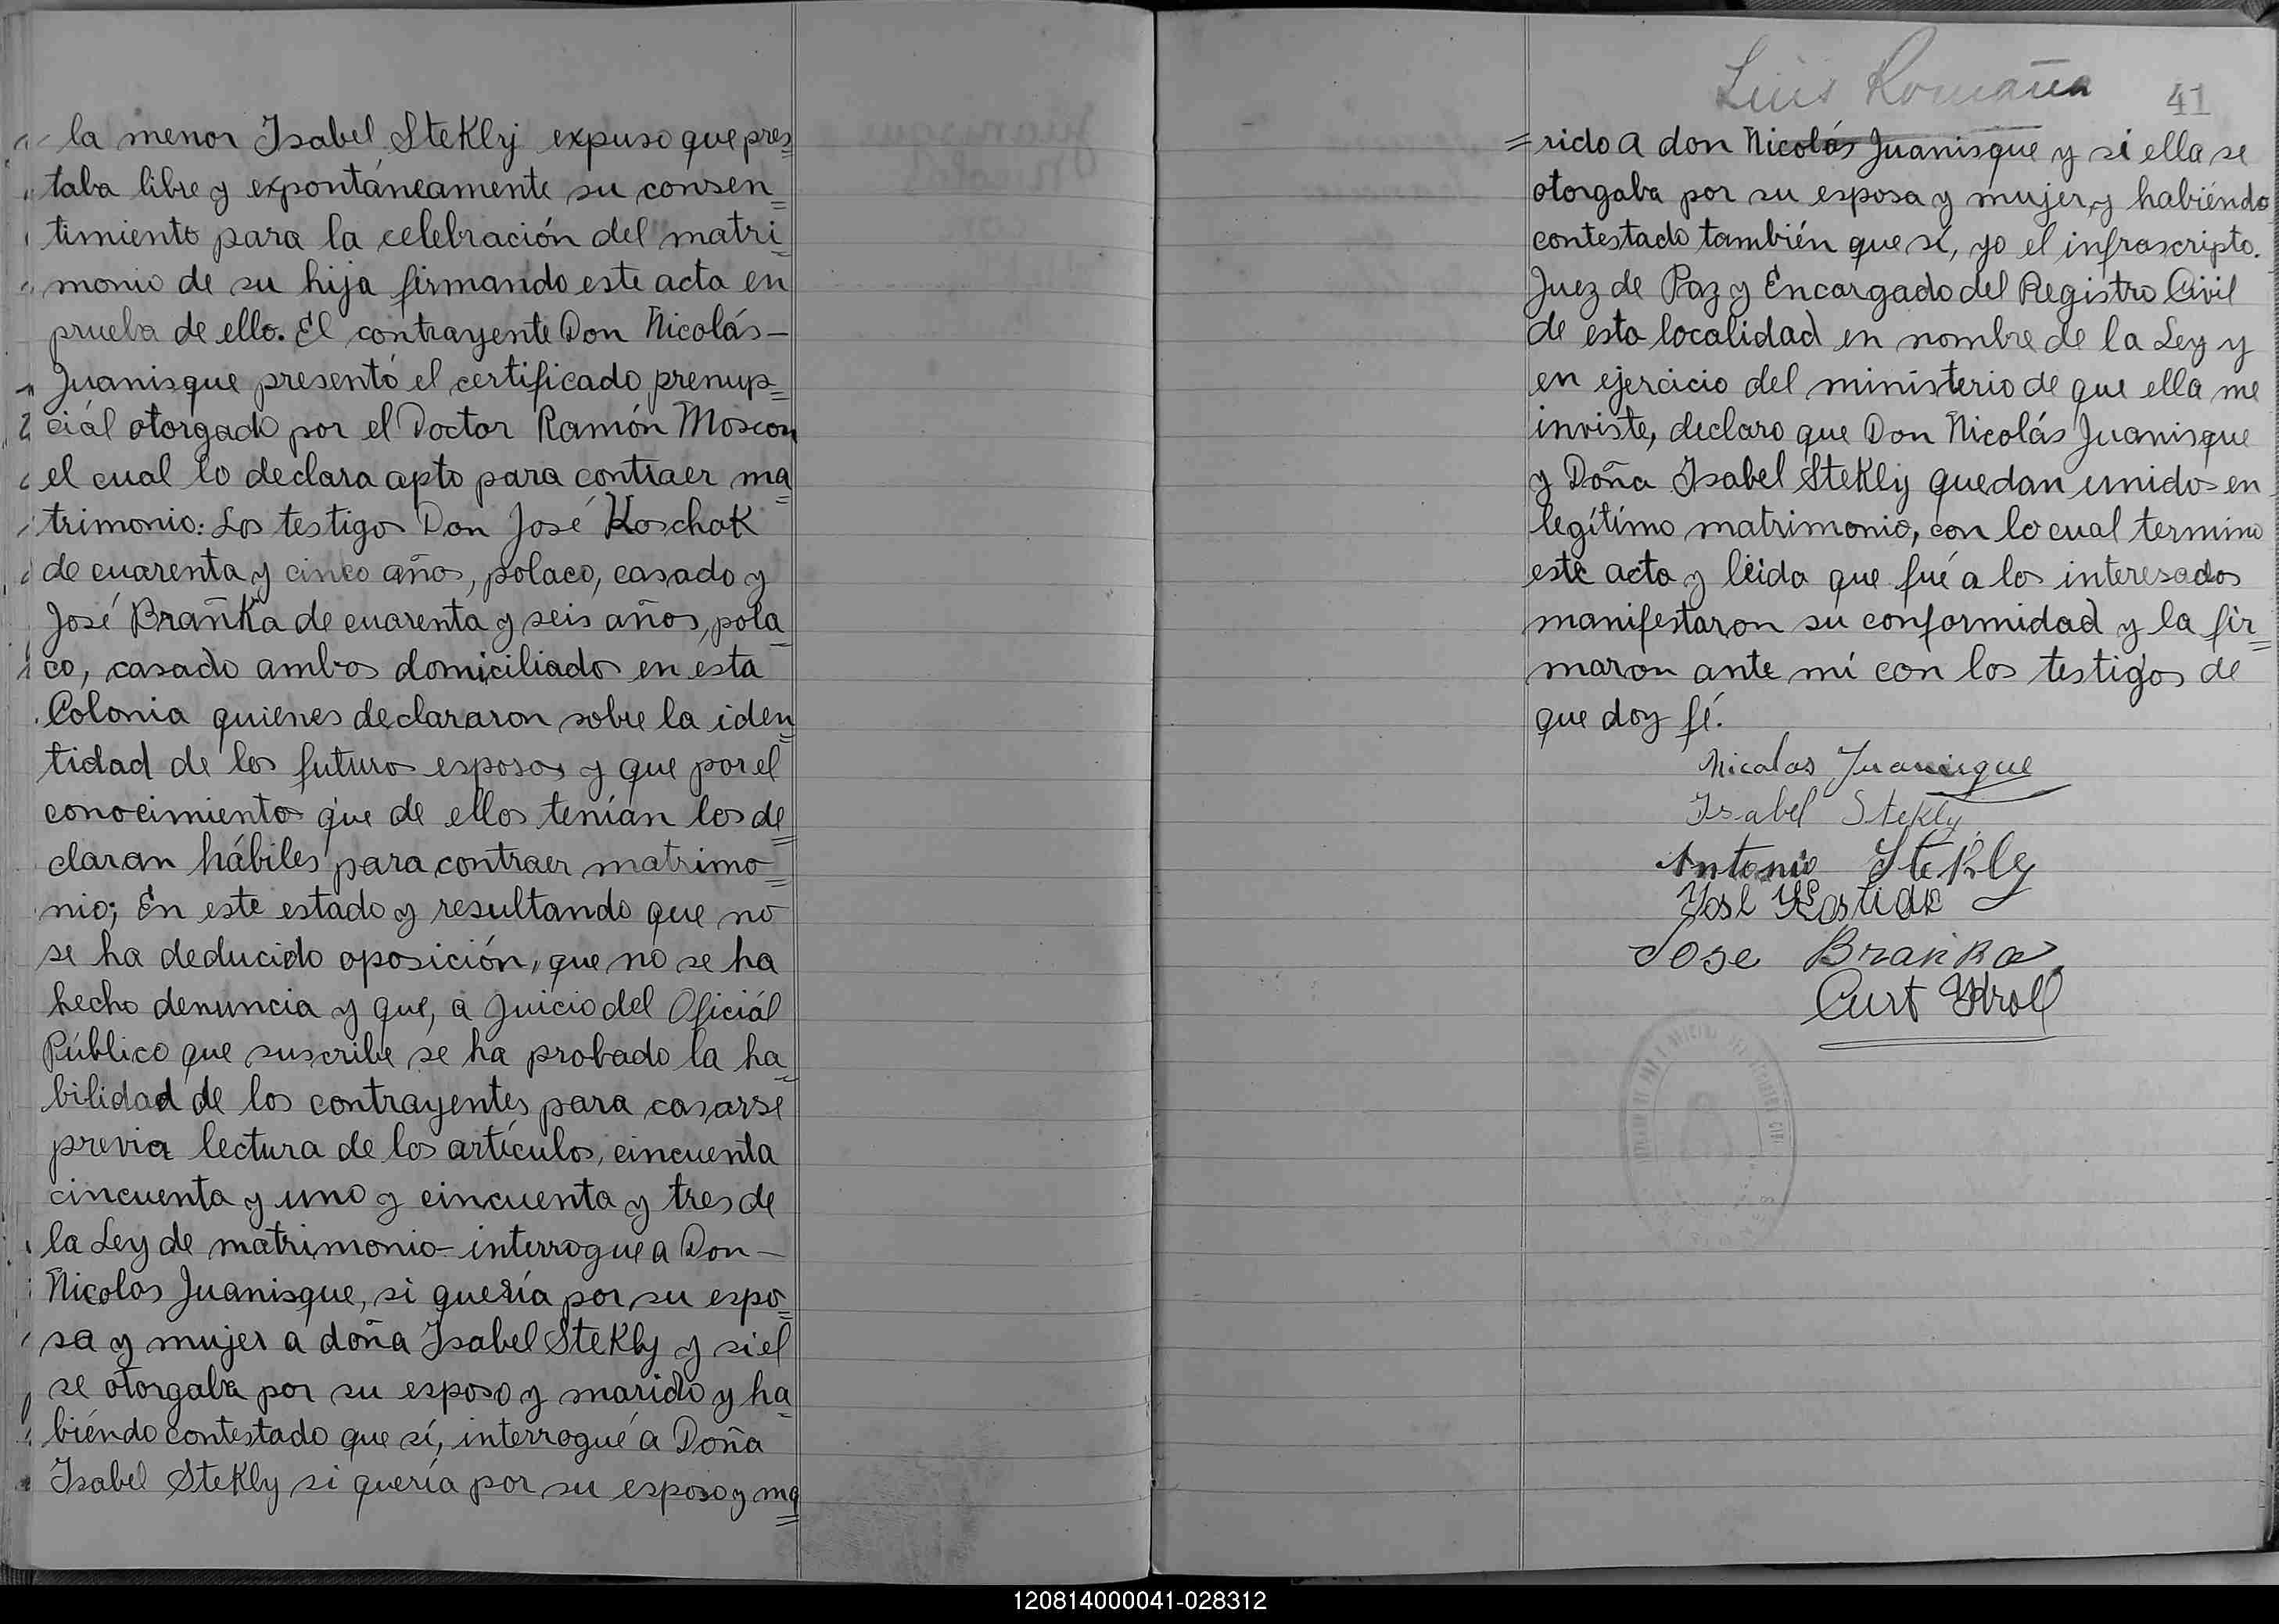 la menor Isabel Stekly expuso que pres=
taba libre y expontáneamente su consen=
timiento para la celebración del matri=
monio de su hija firmando este acta en
prueba de ello. El contrayente Don Nicolás-
Juanisque presentó el certificado prenup=
ciál otorgado por el Doctor Ramón Moscon
el cual lo declara apto para contraer ma=
trimonio: Los testigos Don José Koschak
de cuarenta y cinco años, polaco, casado y
José Brañka de cuarenta y seis años, pola=
co, casado ambos domiciliados en ésta
Colonia quienes declararon sobre la iden=
tidad de los futuros esposos y que por el
conocimiento que de ellos tenían los de=
claran hábiles para contraer matrimo=
nio; En este estado y resultando que no
se ha deducido oposición, que no se ha
hecho denuncia y que, a juicio del Oficiál
Público que suscribe se ha probado la ha=
bilidad de los contrayentes para casarse
previa lectura de los artículos, cincuenta
cincuenta y uno y cincuenta y tres de
la Ley de matrimonio-interrogue a Don-
Nicolas Juanisque, si quería por su espo=
sa y mujer a doña Isabel Stekly y si el
se otorgaba por su esposo y marido y ha=
biéndo contestado que sí, interrogué a Doña
Isabel Stekly si quería por su esposo y ma=
Luis Romaña
41
=rido a don Nicolás Juanisque y si ella se
otorgaba por su esposa y mujer, y habiéndo
contestado también que sí, yo el infrascripto.
Juez de Paz y Encargado del Registro Civil
de esta localidad en nombre de la Ley y
en ejercicio del ministerio de que ella me
inviste, declaro que Don Nicolás Juanisque
y Doña Isabel Stekly quedan unidos en
legítimo matrimonio, con lo cual termino
este acta y leida que fué a los interesados
manifestaron su conformidad y la fir=
maron ante mí con los testigos de
que doy fé.
Nicolas Juanisque
Isabel Stekly
Antonio Stekly
José
Jose Branka
Curt Kroll
120814000041-028312